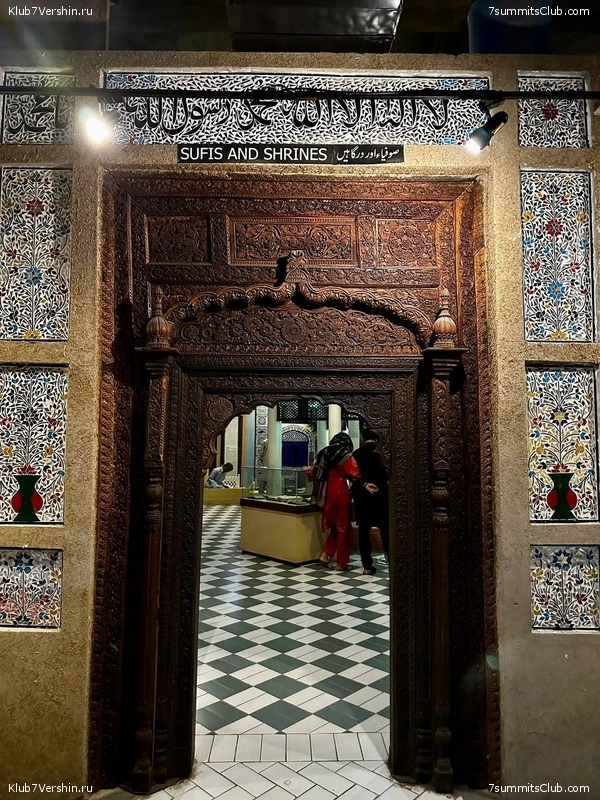 Klub7Vershin.ru
7summitsClub.com
لا اله الا الله محمد رسول الله
SUFIS AND SHRINES صوفیاء اور درگاہیں
Klub7Vershin.ru
7summitsClub.com